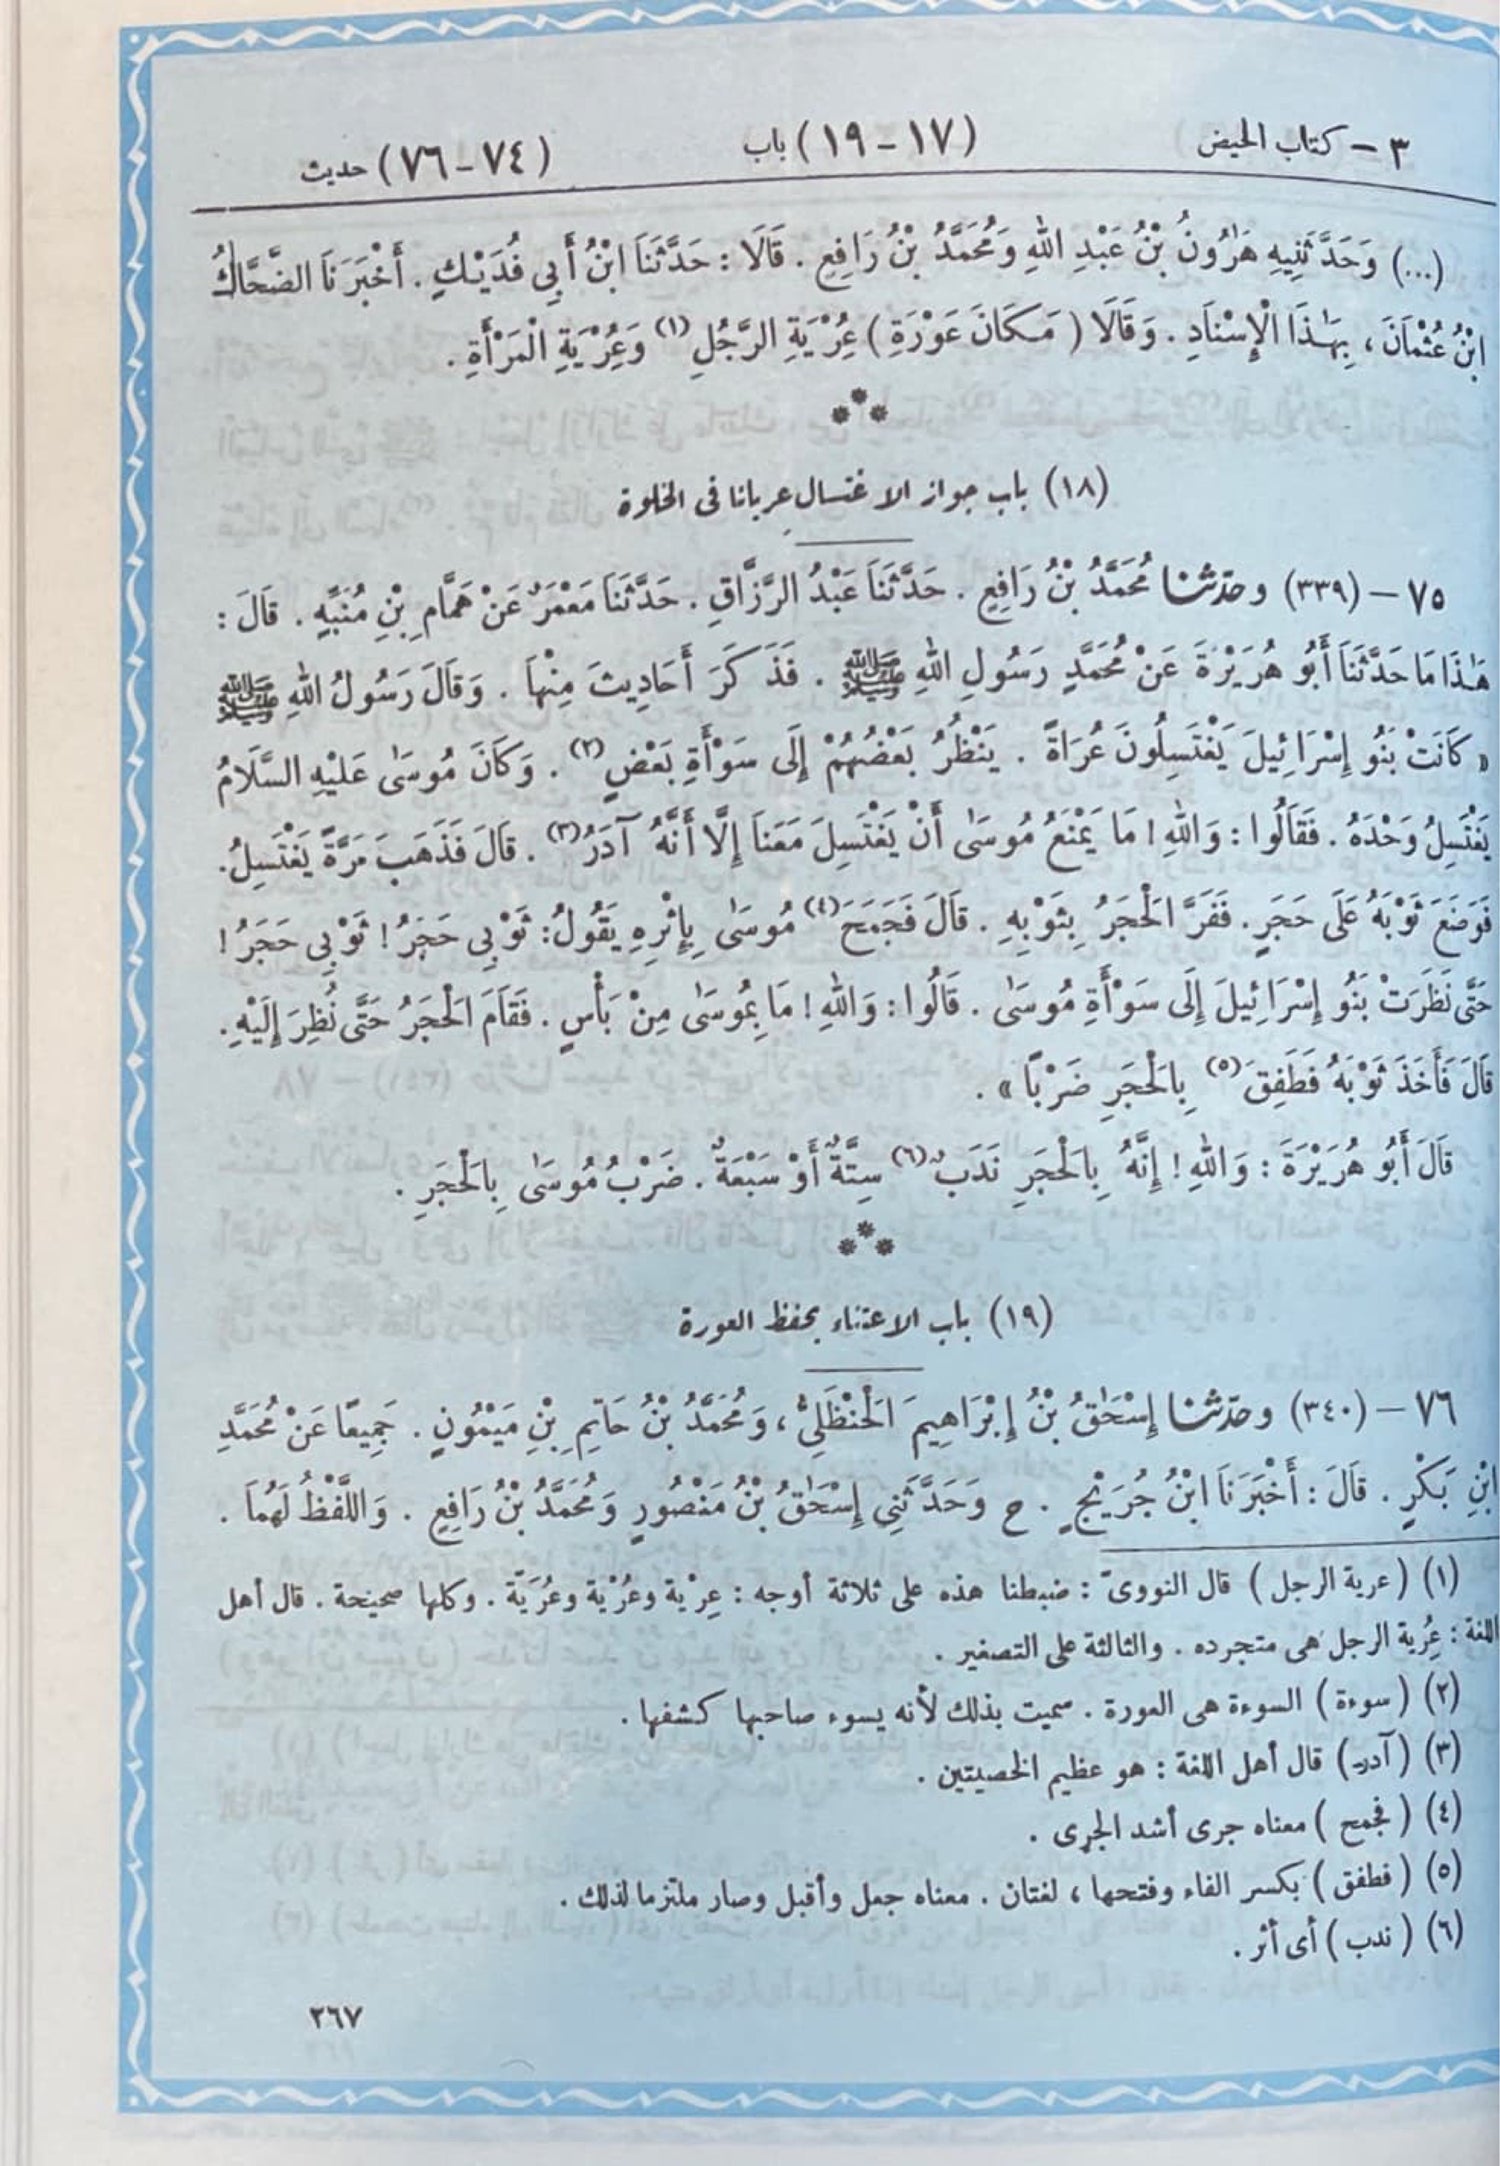 ٣ - كتاب الحيض (١٧ - ١٩) باب (٧٤ - ٧٦) حديث
(...) وَحَدَّثَنِيهِ هَٰرُونُ بْنُ عَبْدِ اللهِ وَمُحَمَّدُ بْنُ رَافِعٍ . قَالَا : حَدَّثَنَا ابْنُ أَبِي فُدَيْكٍ . أَخْبَرَنَا الضَّحَّاكُ
ابْنُ عُثْمَانَ ، بِهَٰذَا الْإِسْنَادِ . وَقَالَا ( مَكَانَ عَوْرَةِ ) عُِرْيَةِ الرَّجُلِ (١) وَعُِرْيَةِ الْمَرْأَةِ .
***
(١٨) باب جواز الاغتسال عريانا فى الخلوة
٧٥ - (٣٣٩) وحدّثنا مُحَمَّدُ بْنُ رَافِعٍ . حَدَّثَنَا عَبْدُ الرَّزَّاقِ . حَدَّثَنَا مَعْمَرٌ عَنْ هَمَّامِ بْنِ مُنَبِّهٍ . قَالَ :
هَٰذَا مَا حَدَّثَنَا أَبُو هُرَيْرَةَ عَنْ مُحَمَّدٍ رَسُولِ اللهِ ﷺ . فَذَكَرَ أَحَادِيثَ مِنْهَا . وَقَالَ رَسُولُ اللهِ ﷺ
« كَانَتْ بَنُو إِسْرَائِيلَ يَغْتَسِلُونَ عُرَاةً . يَنْظُرُ بَعْضُهُمْ إِلَى سَوْأَةِ بَعْضٍ (٢) . وَكَانَ مُوسَىٰ عَلَيْهِ السَّلَامُ
يَغْتَسِلُ وَحْدَهُ . فَقَالُوا : وَاللهِ ! مَا يَمْنَعُ مُوسَىٰ أَنْ يَغْتَسِلَ مَعَنَا إِلَّا أَنَّهُ آدَرُ (٣) . قَالَ فَذَهَبَ مَرَّةً يَغْتَسِلُ.
فَوَضَعَ ثَوْبَهُ عَلَى حَجَرٍ . فَفَرَّ الْحَجَرُ بِثَوْبِهِ . قَالَ فَجَمَحَ (٤) مُوسَىٰ بِإِثْرِهِ يَقُولُ: ثَوْبِي حَجَرُ ! ثَوْبِي حَجَرُ !
حَتَّى نَظَرَتْ بَنُو إِسْرَائِيلَ إِلَى سَوْأَةِ مُوسَىٰ . قَالُوا : وَاللهِ ! مَا بِمُوسَىٰ مِنْ بَأْسٍ . فَقَامَ الْحَجَرُ حَتَّى نُظِرَ إِلَيْهِ.
قَالَ فَأَخَذَ ثَوْبَهُ فَطَفِقَ (٥) بِالْحَجَرِ ضَرْبًا » .
قَالَ أَبُو هُرَيْرَةَ : وَاللهِ ! إِنَّهُ بِالْحَجَرِ نَدَبٌ (٦) سِتَّةٌ أَوْ سَبْعَةٌ . ضَرْبُ مُوسَىٰ بِالْحَجَرِ .
***
(١٩) باب الاعتناء بحفظ العورة
٧٦ - (٣٤٠) وحدّثنا إِسْحَٰقُ بْنُ إِبْرَاهِيمَ الْحَنْظَلِيُّ ، وَمُحَمَّدُ بْنُ حَاتِمِ بْنِ مَيْمُونٍ . جَمِيعًا عَنْ مُحَمَّدِ
ابْنِ بَكْرٍ . قَالَ : أَخْبَرَنَا ابْنُ جُرَيْجٍ . ح وَحَدَّثَنِي إِسْحَٰقُ بْنُ مَنْصُورٍ وَمُحَمَّدُ بْنُ رَافِعٍ . وَاللَّفْظُ لَهُمَا .
(١) ( عرية الرجل ) قال النووىّ : ضبطنا هذه على ثلاثة أوجه : عِرْية وعُرْية وعُرَيّة . وكلها صحيحة . قال أهل
اللغة : عُِرية الرجل هى متجرده . والثالثة على التصغير .
(٢) ( سوءة ) السوءة هى العورة . سميت بذلك لأنه يسوء صاحبها كشفها .
(٣) ( آدر ) قال أهل اللغة : هو عظيم الخصيتين .
(٤) ( فجمح ) معناه جرى أشد الجرى .
(٥) ( فطفق ) بكسر الفاء وفتحها ، لغتان . معناه جعل وأقبل وصار ملتزما لذلك .
(٦) ( ندب ) أى أثر .
٢٦٧